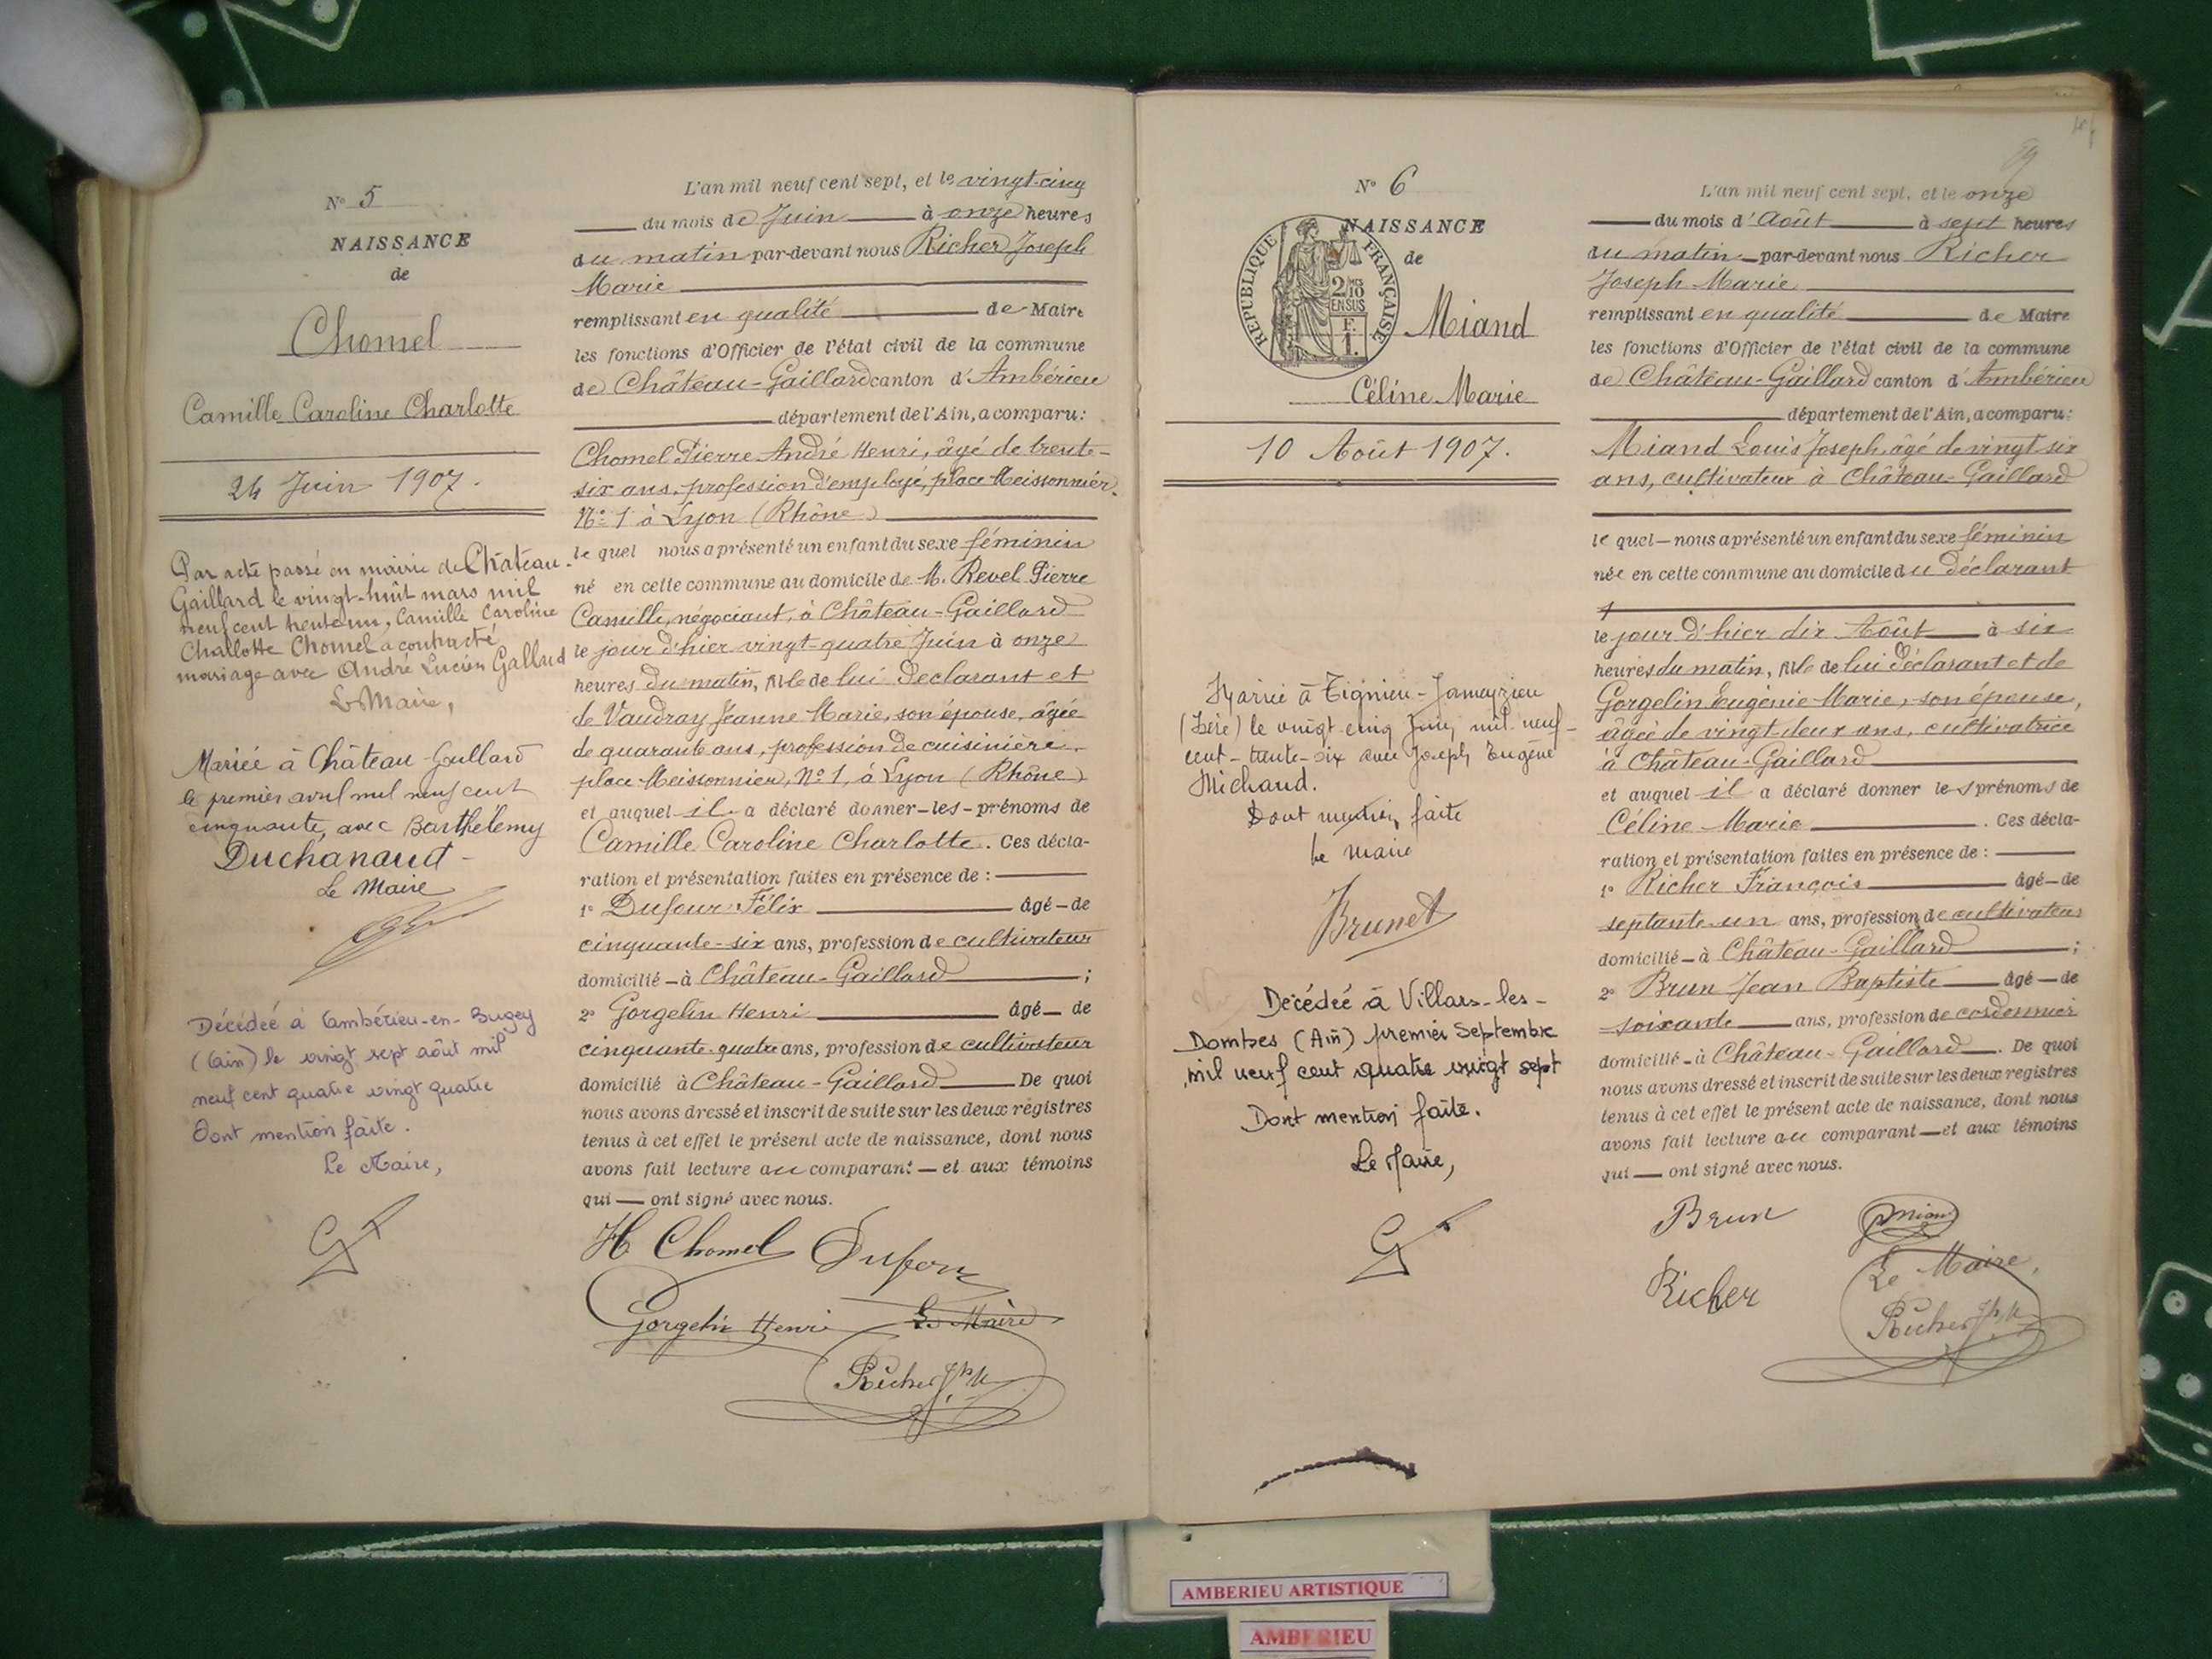 N° 5
NAISSANCE
de
Chomel
Camille Caroline Charlotte
24 Juin 1907.
Par acte passé en mairie de Château-
Gaillard le vingt-huit mars mil
neuf cent trente un, Camille Caroline
Charlotte Chomel a contracté
mariage avec André Lucien Galland
Le Maire,
Mariée à Château-Gaillard
le premier avril mil neuf cent
cinquante, avec Barthélemy
Duchanaud-
Le Maire
Décédée à Ambérieu-en-Bugey
(Ain) le vingt sept août mil
neuf cent quatre vingt quatre
Dont mention faite.
Le Maire,
L'an mil neuf cent sept, et le vingt-cinq
du mois de Juin à onze heures
du matin par-devant nous Richer Joseph
Marie
remplissant en qualité de Maire
les fonctions d'Officier de l'état civil de la commune
de Château-Gaillard canton d'Ambérieu
département de l'Ain, a comparu:
Chomel Pierre André Henri, âgé de trente-
six ans, profession d'employé, place Meissonnier,
N° 1 à Lyon (Rhône)
lequel nous a présenté un enfant du sexe féminin
né en cette commune au domicile de M. Revel Pierre
Camille, négociant, à Château-Gaillard
le jour d'hier vingt-quatre Juin à onze
heures du matin, fille de lui Déclarant et
de Vaudray Jeanne Marie, son épouse, âgée
de quarante ans, profession de cuisinière,
place Meissonnier, N° 1, à Lyon (Rhône)
et auquel il a déclaré donner les prénoms de
Camille Caroline Charlotte. Ces décla-
ration et présentation faites en présence de :
1° Dufour Félix âgé de
cinquante-six ans, profession de cultivateur
domicilié à Château-Gaillard ;
2° Gorgelin Henri âgé de
cinquante-quatre ans, profession de cultivateur
domicilié à Château-Gaillard De quoi
nous avons dressé et inscrit de suite sur les deux registres
tenus à cet effet le présent acte de naissance, dont nous
avons fait lecture au comparant et aux témoins
qui ont signé avec nous.
H Chomel Dufour
Gorgelin Henri Le Maire
Richer Jph M
N° 6
NAISSANCE
de
REPUBLIQUE FRANÇAISE
2/10
EN SUS
F.
1.
Miand
Céline Marie
10 Août 1907.
Mariée à Tignieu-Jameyzieu
(Isère) le vingt cinq Juin mil neuf-
cent-trente-six avec Joseph Eugène
Michaud.
Dont mention faite
Le Maire
Brunet
Décédée à Villars-les-
Dombes (Ain) premier Septembre
mil neuf cent quatre vingt sept
Dont mention faite.
Le Maire,
L'an mil neuf cent sept, et le onze
du mois d'Août à sept heures
du matin par-devant nous Richer
Joseph Marie
remplissant en qualité de Maire
les fonctions d'Officier de l'état civil de la commune
de Château-Gaillard canton d'Ambérieu
département de l'Ain, a comparu:
Miand Louis Joseph, âgé de vingt six
ans, cultivateur à Château-Gaillard
lequel nous a présenté un enfant du sexe féminin
née en cette commune au domicile du déclarant
le jour d'hier dix Août à six
heures du matin, fille de lui Déclarant et de
Gorgelin Eugénie Marie, son épouse,
âgée de vingt-deux ans, cultivatrice
à Château-Gaillard
et auquel il a déclaré donner les prénoms de
Céline Marie . Ces décla-
ration et présentation faites en présence de :
1° Richer François âgé de
septante-un ans, profession de cultivateur
domicilié à Château-Gaillard ;
2° Brun Jean Baptiste âgé de
soixante ans, profession de cordonnier
domicilié à Château-Gaillard. De quoi
nous avons dressé et inscrit de suite sur les deux registres
tenus à cet effet le présent acte de naissance, dont nous
avons fait lecture au comparant et aux témoins
qui ont signé avec nous.
Brun Miand
Richer Le Maire,
Richer Jph M
AMBERIEU ARTISTIQUE
AMBERIEU